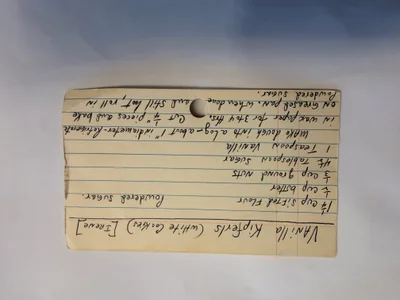 VANILLA KIPFERLS (WHITE COOKIES) [IRENE]
1 3/4 cup Sifted Flour Powdered Sugar.
1/2 cup butter
1/3 cup ground NUTS
4 Tablespoon Sugar
1 Teaspoon Vanilla
Make dough into a log - about 1" in diameter - Refrigerate
in wax paper for 3 to 4 Hrs. Cut 1/2" pieces and bake
on greased pan. When done and still hot, roll in
Powdered Sugar.